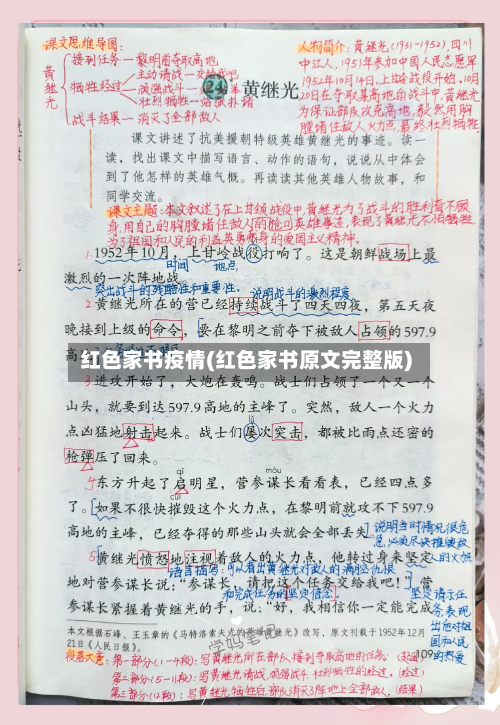 课文思维导图:
黄继光
接到任务—黎明前夺取高地
牺牲经过
主动请战—交给我吧
顽强战斗—
壮烈牺牲—
战斗结果—消灭了全部敌人
24 黄继光
人物简介:黄继光(1931-1952),四川
中江人,1951年参加中国人民志愿军
1952年10月14日,上甘岭战役开始,10月
20日在夺取某高地的战斗中,黄继光
为保证部队攻克高地,毅然用胸
膛堵住敌人火力点,最终壮烈牺牲
课文讲述了抗美援朝特级英雄黄继光的事迹。读一
读,找出课文中描写语言、动作的语句,说说从中体会
到了他怎样的英雄气概。再读读其他英雄人物故事,和
同学交流。
课文主题:本文叙述了在上甘领战役中,黄继光为了战斗的胜利奋不顾
身,用自己的胸膛堵住敌人的枪口英雄事迹,表现了黄继光不怕牺牲
为了祖国和人民的利益英勇献身的爱国主义精神。
1 1952年10月,上甘岭战役打响了。这是朝鲜战场上最
时间 地点
激烈的一次阵地战。
突出战斗的残酷性和重要性。 说明战斗的激烈程度
2 黄继光所在的营已经持续战斗了四天四夜,第五天夜
晚接到上级的命令,要在黎明之前夺下被敌人占领的597.9
高
红色家书疫情(红色家书原文完整版)
3 进攻开始了,大炮在轰鸣。战士们占领了一个又一个
山头,就要到达597.9高地的主峰了。突然,敌人一个火力
点凶猛地射击起来。战士们屡次突击,都被比雨点还密的
lǚ
枪弹压了回来。
qǐ móu
4 东方升起了启明星,营参谋长看看表,已经四点多
cuī
了。如果不很快摧毁这个火力点,在黎明前就攻不下597.9
高地的主峰,已经夺得的那些山头就会全部丢失。
说明当时情况很危
急,必须尽快摧毁敌
人的火力
5 黄继光愤怒地注视着敌人的火力点,他转过身来坚定
语言描写:可以看出黄继光对敌人的满腔仇恨
地对营参谋长说:“参谋长,请把这个任务交给我吧!”营
和完成任务的坚定信念。
坚定请示任
务,表现
出他对祖
国和人民
的热爱
参谋长紧握着黄继光的手,说:“好,我相信你一定能完成
本文根据石峰、王玉章的《马特洛索夫式的英雄黄继光》改写,原文刊载于1952年12月
21日《人民日报》。
109
学妈笔记
段落大意:第一部分(1-4段):写黄继光所在部队接到夺取高地的任务。(起因)
第二部分(5-11段):写黄继光请战,顽强战斗,壮烈牺牲的经过。(经过)
第三部分(12段):写黄继光牺牲后,部队消灭了阵地上全部敌人。(结果)